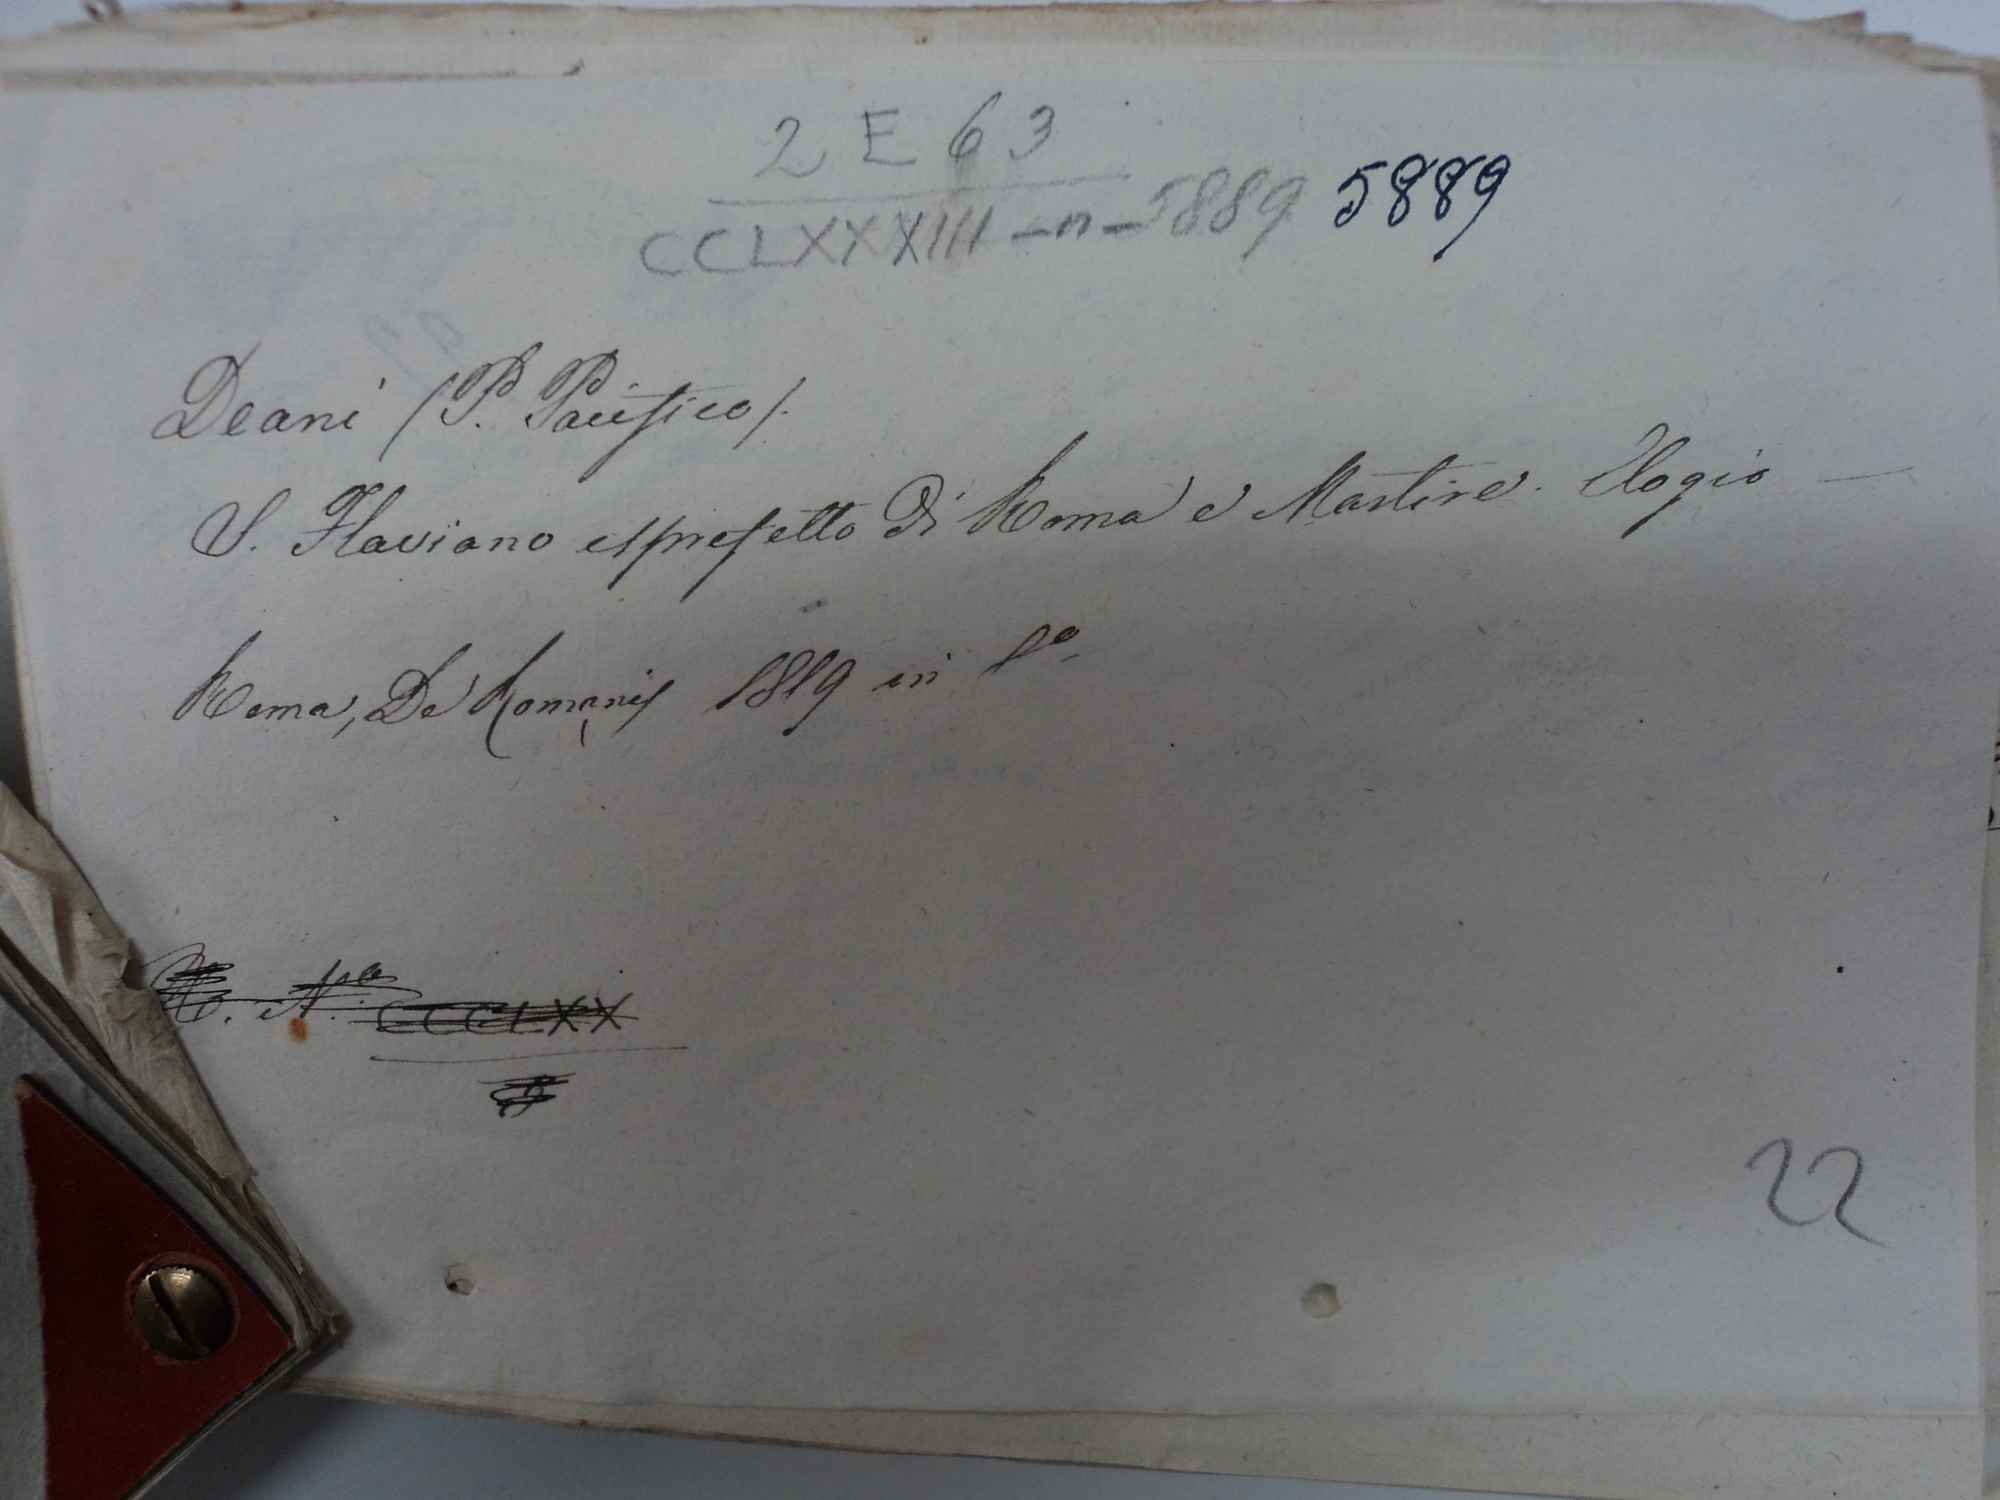 2 E 63
CCLXXXIII - n - 5889 5889
Deani (P. Pacifico).
S. Flaviano esprefetto di Roma e Martire. Elogio —
Roma, De Romanis 1819 in 8º
N.º CCCLXX
22